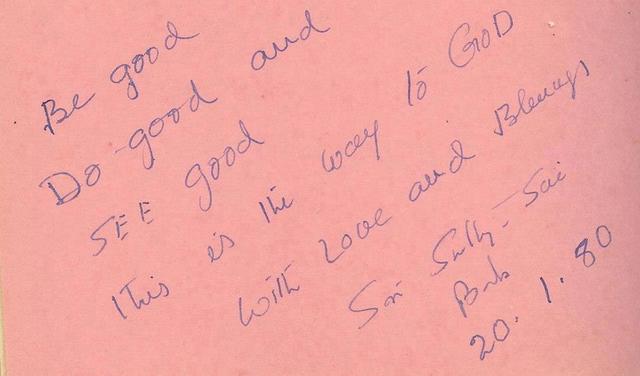 Be good
Do good and
SEE good
This is the way to GOD
With Love and Blessings
Sri Sathya Sai
Baba
20.1.80